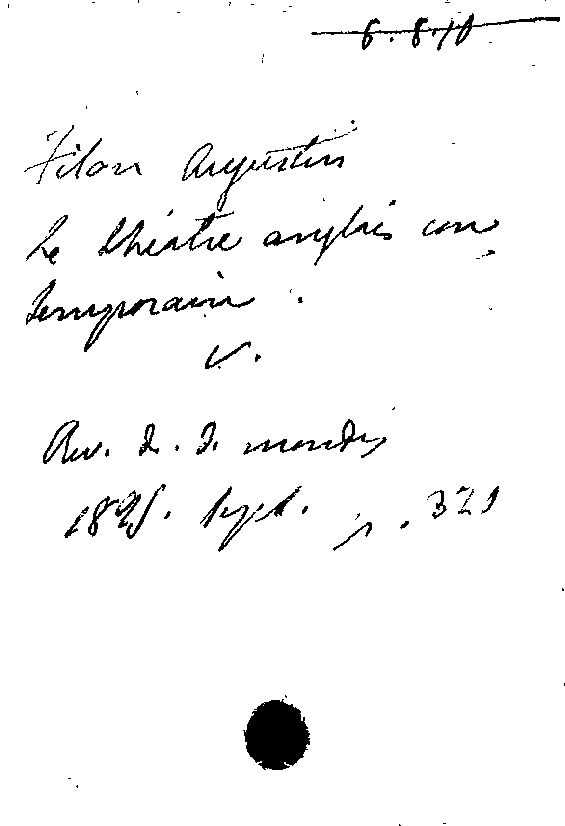 6.8.10
Filon Augustin
Le théatre anglais con
temporain.
V.
Rev. d. d. mondes
1895. sept. p. 321